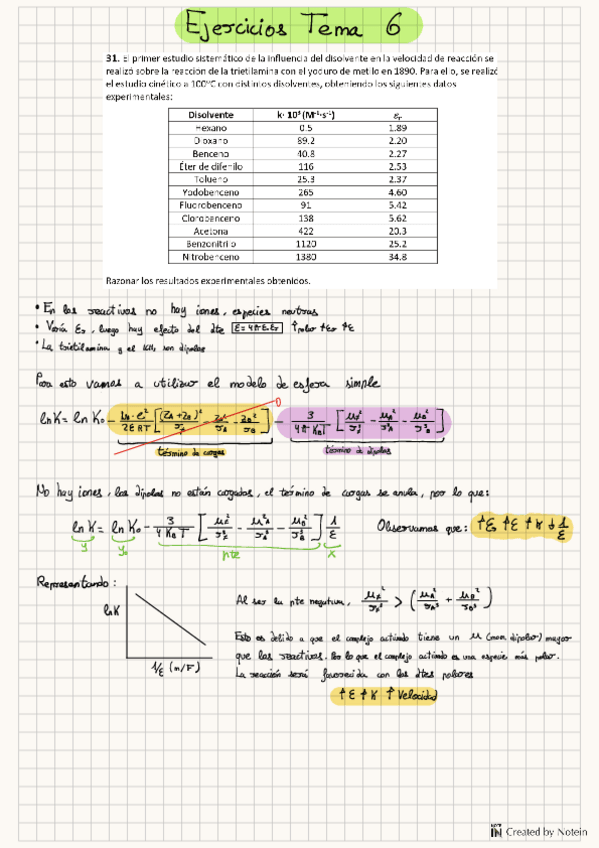 Ejercicios Tema 6
31. El primer estudio sistemático de la influencia del disolvente en la velocidad de reacción se
realizó sobre la reacción de la trietilamina con el yoduro de metilo en 1890. Para el o, se realizó
el estudio cinético a 100ºC con distintos disolventes, obteniendo los siguientes datos
experimentales:
Disolvente k· 10⁵ (M⁻¹·s⁻¹) εr
Hexano 0.5 1.89
Dioxano 89.2 2.20
Benceno 40.8 2.27
Éter de difenilo 116 2.53
Tolueno 25.3 2.37
Yodobenceno 265 4.60
Fluorobenceno 91 5.42
Clorobenceno 138 5.62
Acetona 422 20.3
Benzonitrilo 1120 25.2
Nitrobenceno 1380 34.8
Razonar los resultados experimentales obtenidos.
• En los reactivos no hay iones, especies neutras
• Varía εr, luego hay efecto del dte ε=4πε₀εr ↑polar ↑εr ↑ε
• La trietilamina y el son dipolos
Para esto vamos a utilizar el modelo de esfera simple
ln K = ln K₀ - [(zA+zB)²/r≠ - zA²/rA - zB²/rB] - 3/(4πKBT) [μ≠²/r≠³ - μA²/rA³ - μB²/rB³]
0
término de cargas término de dipolos
No hay iones, los dipolos no están cargados, el término de cargas se anula, por lo que:
ln K = ln K₀ - 3/(4KBT) [μ≠²/r≠³ - μA²/rA³ - μB²/rB³] 1/ε Observamos que: ↑εr ↑ε ↑K ↓1/ε
y y₀ pte x
Representando:
ln K
1/ε (m/F)
Al ser la pte negativa, μ≠²/r≠³ > (μA²/rA³ + μB²/rB³)
Esto es debido a que el complejo activado tiene un μ (mom dipolar) mayor
que los reactivos. Por lo que el complejo activado es una especie más polar.
La reacción será favorecida con los dtes polares
↑ε ↑K ↑Velocidad
Created by Notein